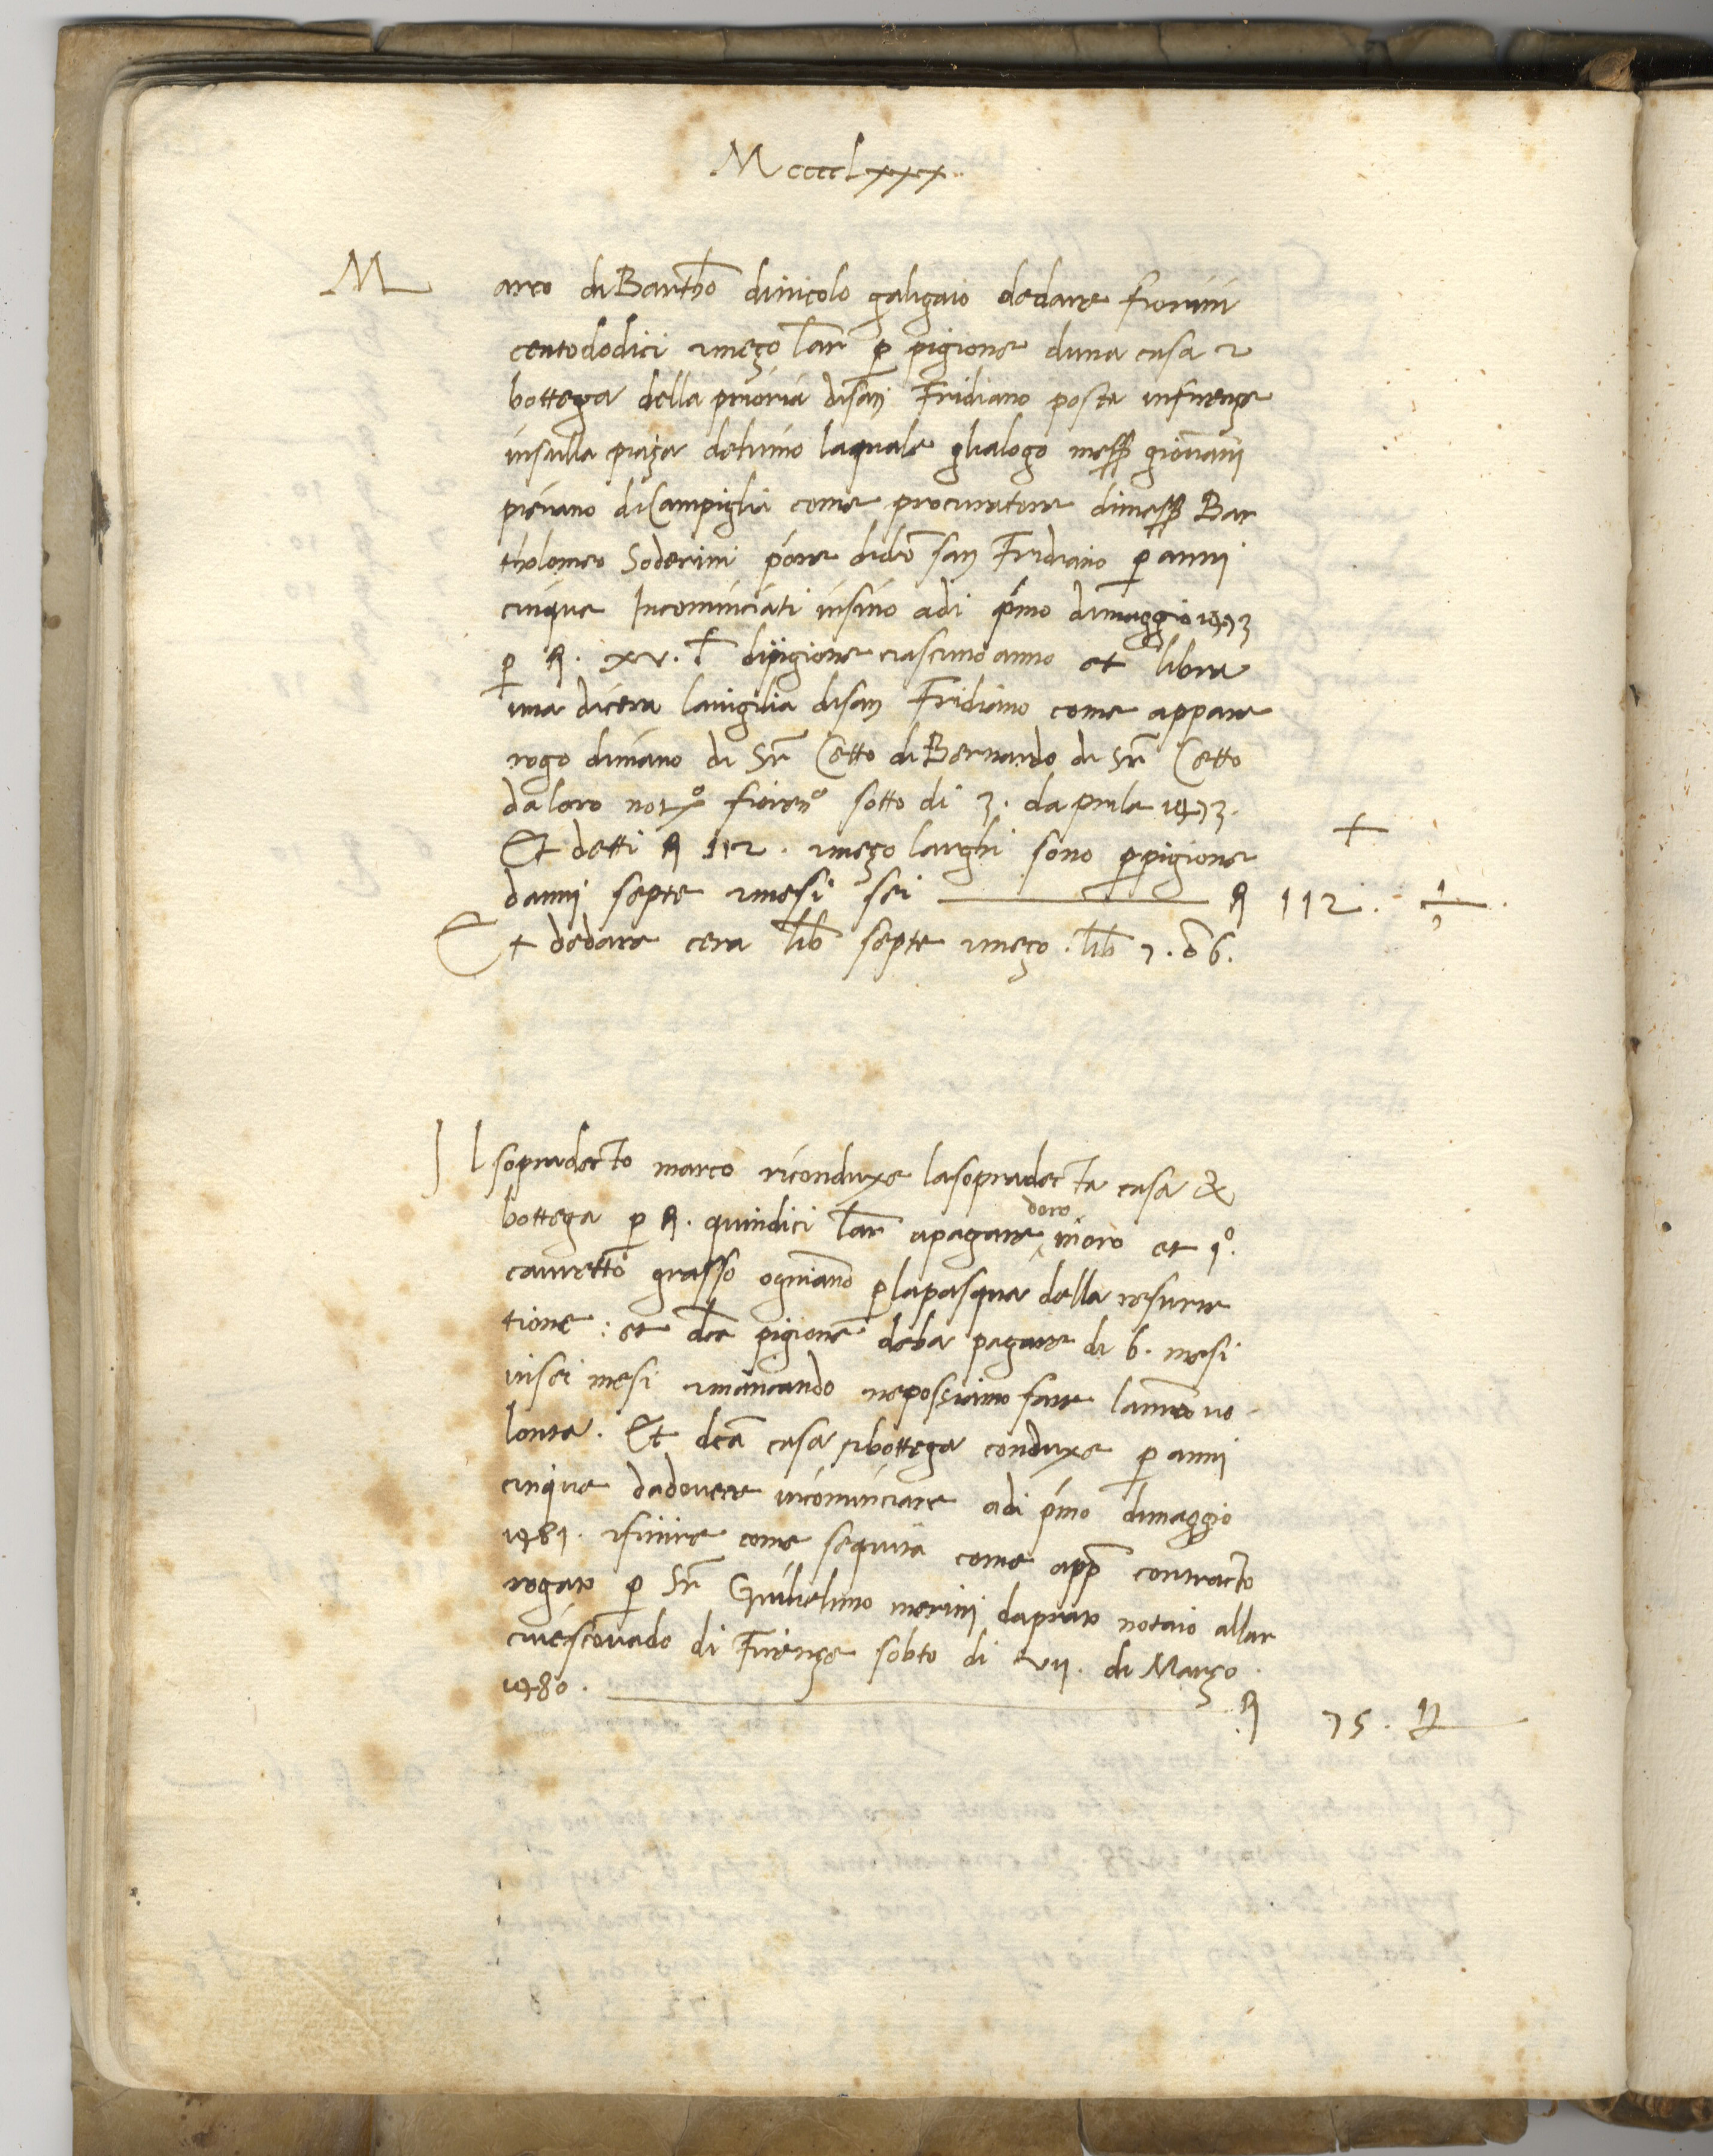 Mcccclxxx.
Marco di Bartho dinicolo galigaio dedare fiorini
centododici et mezo lar p pigione duna casa et
bottega della prioria disan Fridiano posta infirenze
insulla piaza laquale glialogo mess giovani
pievano di Campiglia come procuratore dimess Bar
tholomeo Soderini pore dido san Fridiano p anni
cinque Incominciati insino adi pmo dimaggio 1473
p f. xv. l dipigione ciascuno anno et libra
una dicera lavigilia disan Fridiano come appare
rogo dimano di Sr Cetto di Bernardo di Sr Cetto
daloro notro fioreno sotto di 3. daprile 1473.
Et detti f 112. et mezo larghi sono p pigione
danni septe et mesi sei f 112. 1/2.
Et dedare cera lib septe et mezo. lib 7. o 6.
Il sopradecto marco riconduxe lasopradecta casa &
bottega p f. quindici lar apagare doro inoro et 1o.
cavretto grasso ogniano p lapasqua della resurre
tione: et dca pigione deba pagare di 6. mesi
insei mesi et mancando nepossiamo fare lanostra vo
lonta. Et dca casa et bottega conduxe p anni
cinque dadovere incominciare adi pmo dimaggio
1481. et finire come sequita come app contracto
rogato p Sr Guilielmo daprato notaio allar
civescovado di Firenze sobto di vii. di Marzo
1480. f 75.